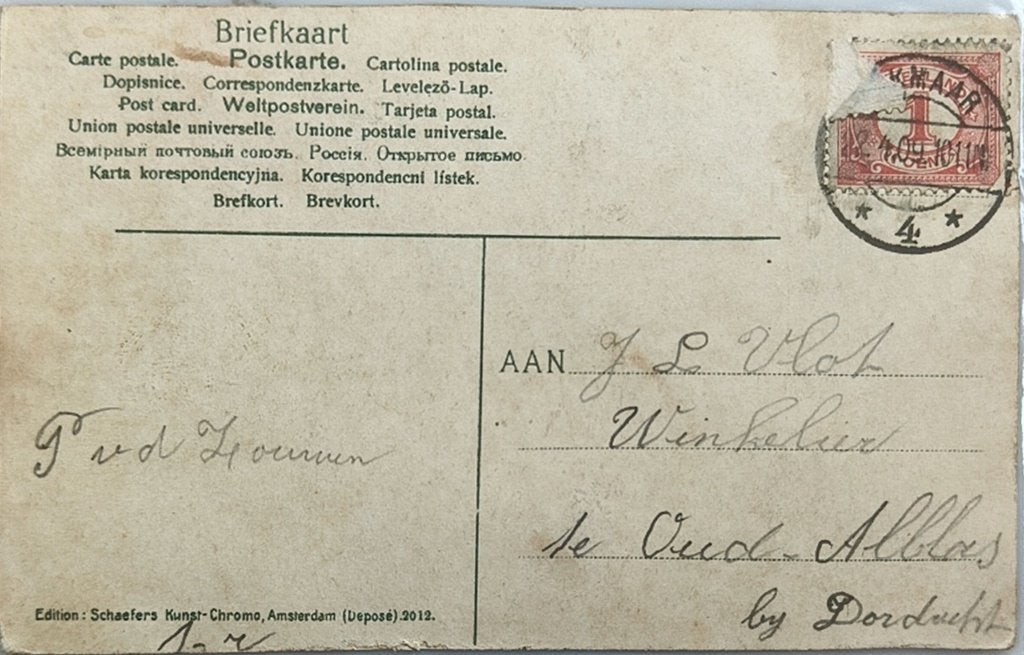 Briefkaart
Carte postale. Postkarte. Cartolina postale.
Dopisnice. Correspondenzkarte. Levelező-Lap.
Post card. Weltpostverein. Tarjeta postal.
Union postale universelle. Unione postale universale.
Всемірный почтовый союзъ. Россія. Открытое письмо.
Karta korespondencyjna. Korespondencni lístek.
Brefkort. Brevkort.
KMAAR
1
CENT
4.09 10-11
* 4 *
AAN J L Vlot
Winkelier
te Oud-Alblas
by Dordrecht
P vd
Edition: Schaefers Kunst-Chromo, Amsterdam (Deposé) 2012.